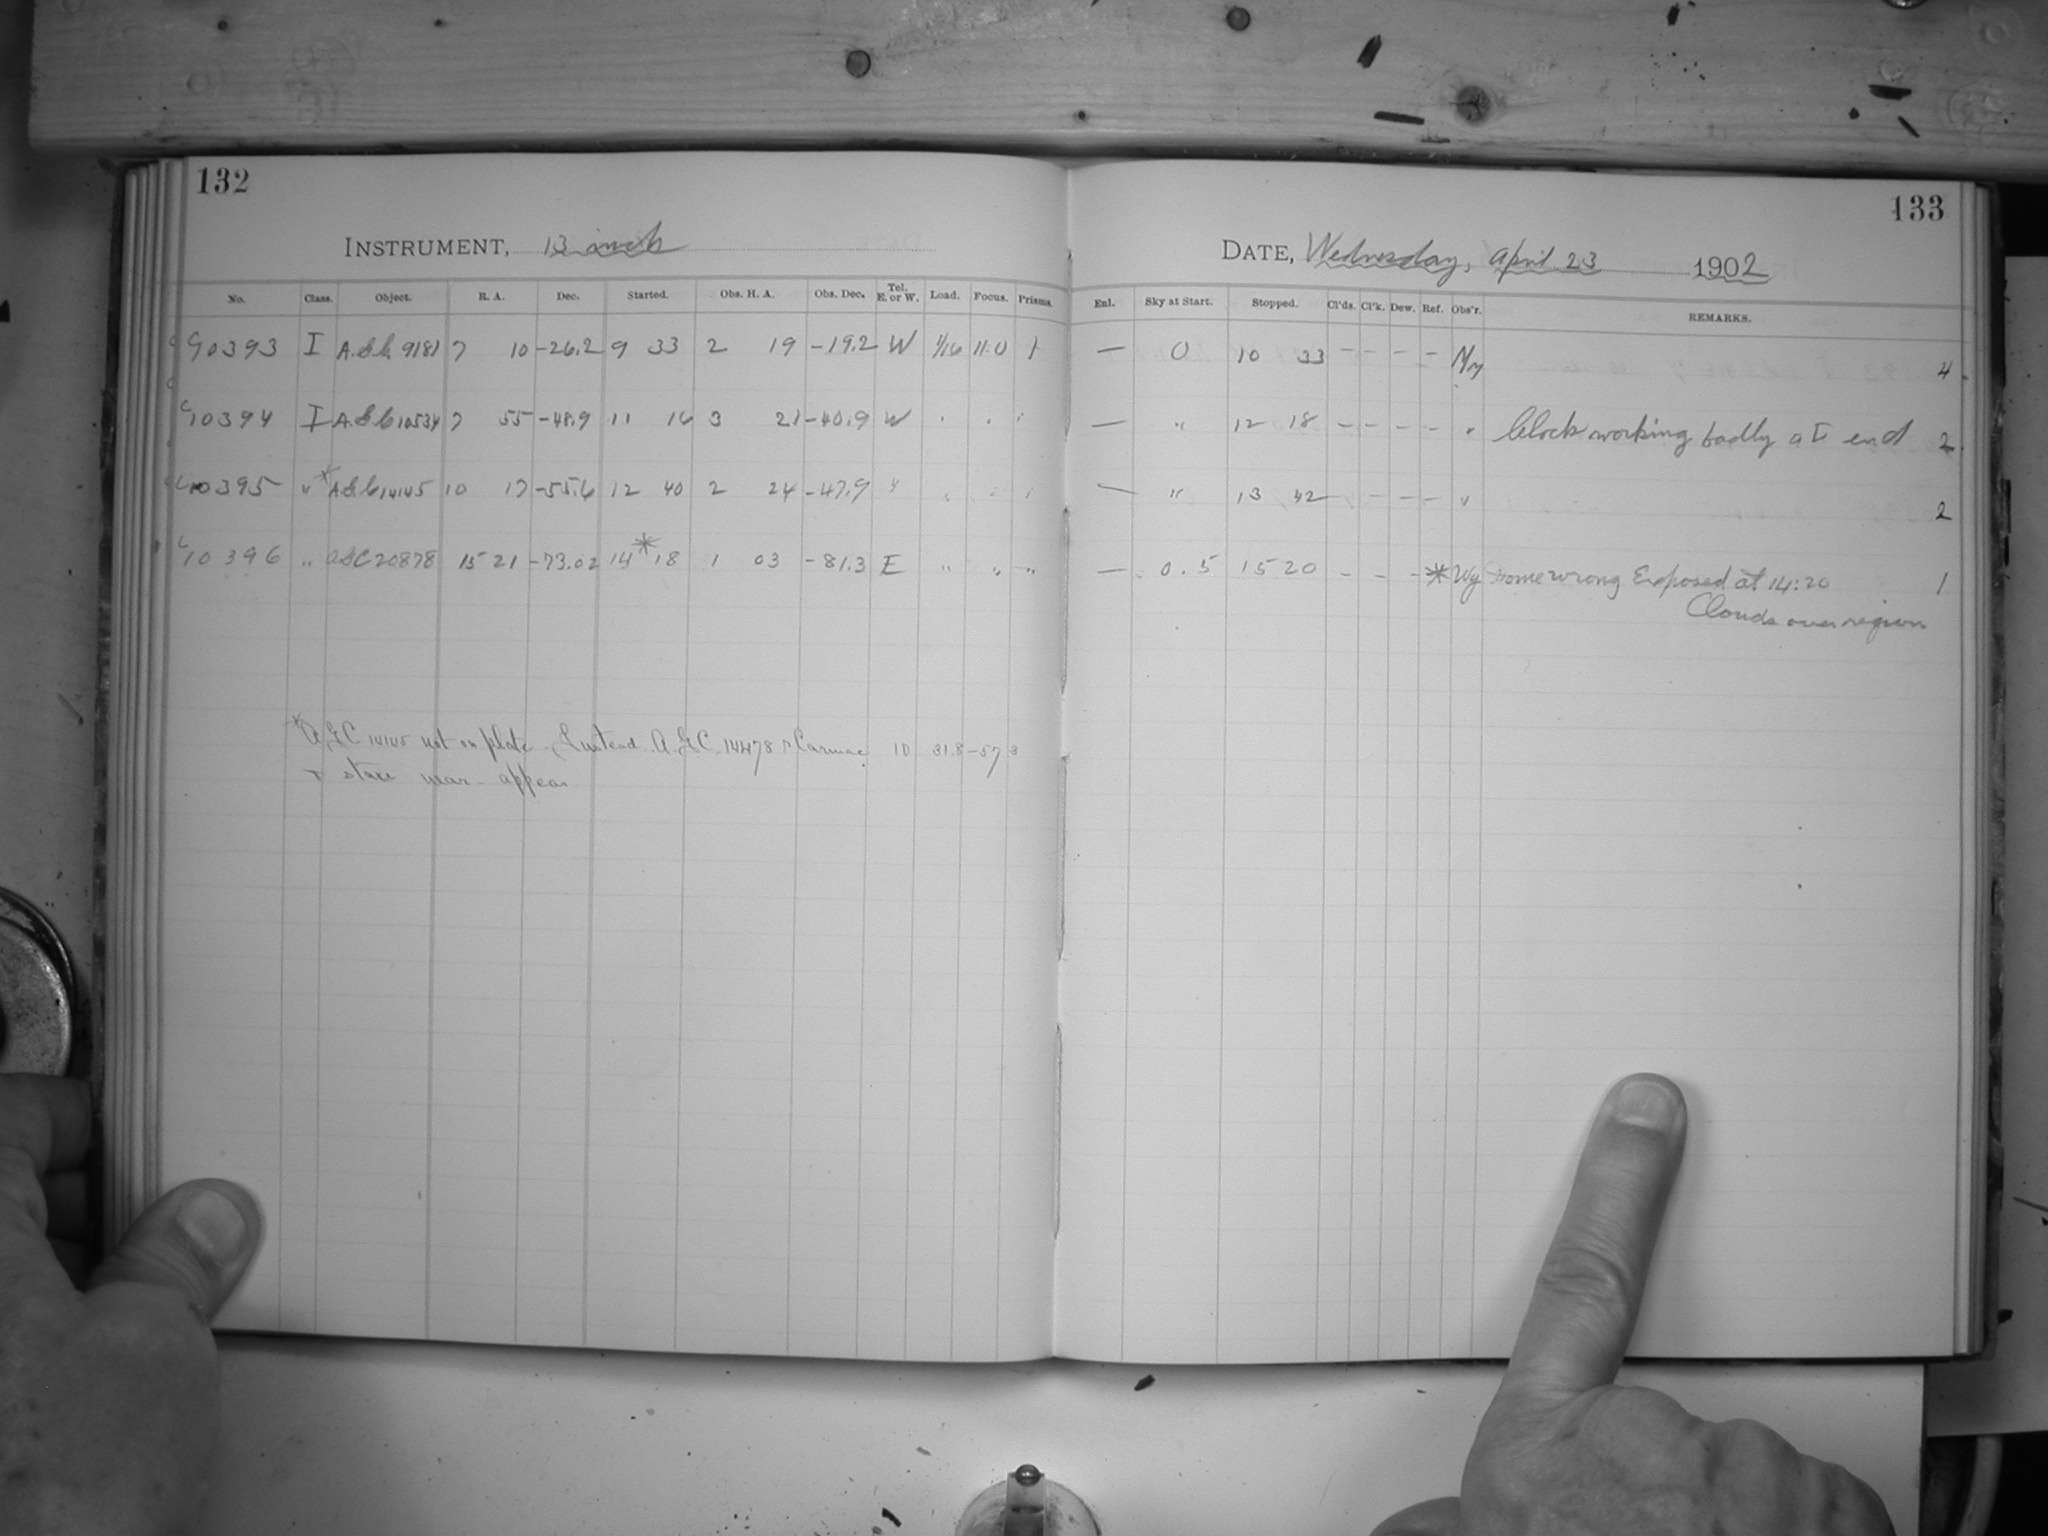 132
INSTRUMENT, 13 inch
No. Class. Object. R. A. Dec. Started. Obs. H. A. Obs. Dec. Tel. E. or W. Load. Focus. Prisms
C10393 I A.G.C. 9181 7 10 -26.2 9 33 2 19 -19.2 W 1/16 11.0 1
C10394 I A.G.C. 10534 7 55 -48.9 11 16 3 21 -40.9 W " " "
C10395 " * A.G.C. 14145 10 17 -55.6 12 40 2 24 -47.9 " " " "
C10396 " AGC 20878 15 21 -73.02 14 * 18 1 03 -81.3 E " " "
* A.G.C. 14145 not on plate. Instead A.G.C. 14478 r Carinae 10 31.8 -57 3
& stars near appear
133
DATE, Wednesday, April 23 1902
Enl. Sky at Start. Stopped. Cl'ds. Cl'k. Dew. Ref. Obs'r. REMARKS.
— 0 10 33 – – – – 4
— " 12 18 – – – – " Clock working badly at end 2
— " 13 42 – – – – " 2
— 0.5 15 20 – – – * Wy Dome wrong Exposed at 14:20 1
Clouds over region